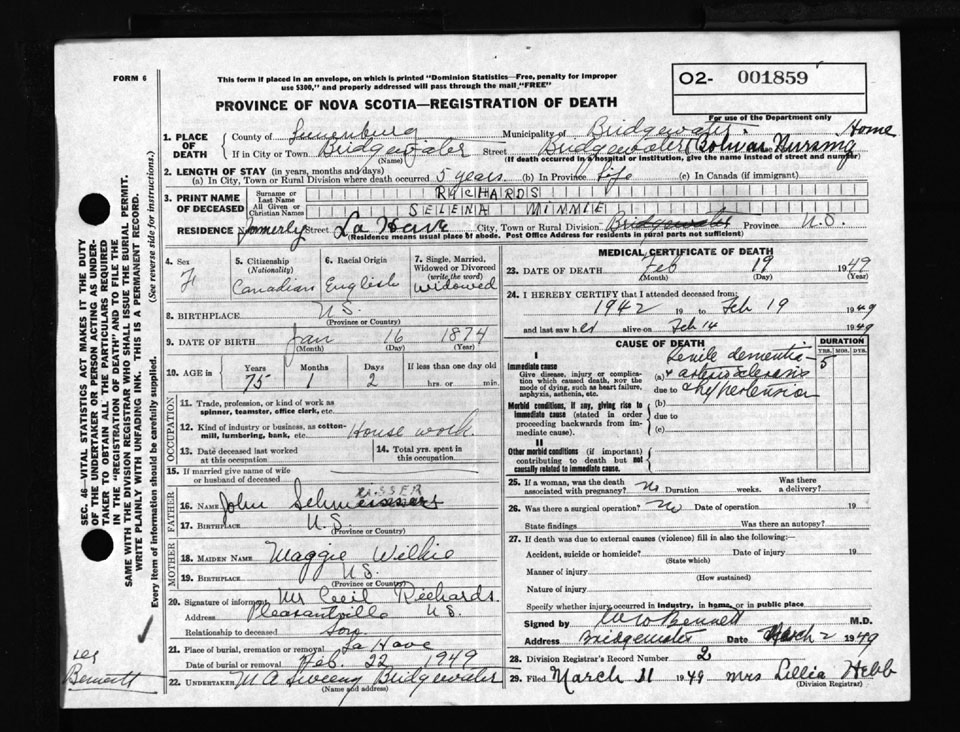 FORM 6
This form if placed in an envelope, on which is printed "Dominion Statistics—Free, penalty for improper
use $300," and properly addressed will pass through the mail, "FREE"
O2- 001859
For use of the Department only
PROVINCE OF NOVA SCOTIA—REGISTRATION OF DEATH
1. PLACE OF DEATH
County of Lunenburg Municipality of Bridgewater Home
If in City or Town Bridgewater Street Bridgewater Nursing
(Name) (If death occurred in a hospital or institution, give the name instead of street and number)
2. LENGTH OF STAY (in years, months and days)
(a) In City, Town or Rural Division where death occurred 5 years. (b) In Province Life (c) In Canada (if immigrant)
3. PRINT NAME OF DECEASED
Surname or Last Name RICHARDS
All Given or Christian Names SELENA MINNIE
RESIDENCE formerly Street La Have City, Town or Rural Division Bridgewater Province N.S.
(Residence means usual place of abode. Post Office Address for residents in rural parts not sufficient)
4. Sex F
5. Citizenship (Nationality) Canadian
6. Racial Origin English
7. Single, Married, Widowed or Divorced (write the word) Widowed
8. BIRTHPLACE N.S.
(Province or Country)
9. DATE OF BIRTH Jan 16 1874
(Month) (Day) (Year)
10. AGE in Years Months Days If less than one day old
75 1 2 hrs. or min.
OCCUPATION
11. Trade, profession, or kind of work as spinner, teamster, office clerk, etc.
12. Kind of industry or business, as cotton-mill, lumbering, bank, etc. House work.
13. Date deceased last worked at this occupation
14. Total yrs. spent in this occupation
15. If married give name of wife or husband of deceased
FATHER
16. NAME John
17. BIRTHPLACE N.S.
MOTHER
18. MAIDEN NAME Maggie Wilkie
19. BIRTHPLACE N.S.
(Province or Country)
20. Signature of informant Mr Cecil Richards.
Address Pleasantville N.S.
Relationship to deceased Son
21. Place of burial, cremation or removal La Have
Date of burial or removal Feb. 22 1949
22. UNDERTAKER M A Sweeny Bridgewater
(Name and address)
MEDICAL CERTIFICATE OF DEATH
23. DATE OF DEATH Feb 19 1949
(Month) (Day) (Year)
24. I HEREBY CERTIFY that I attended deceased from:
1942 19 to Feb 19 1949
and last saw her alive on Feb 14 1949
CAUSE OF DEATH
DURATION
YRS. MOS. DYS.
I
Immediate cause
Give disease, injury or complication which caused death, NOT the mode of dying, such as heart failure, asphyxia, asthenia, etc.
(a) Senile dementia 5
+ arteriosclerosis
due to + hypertension
Morbid conditions, if any, giving rise to immediate cause (stated in order proceeding backwards from immediate cause).
(b)
due to
(c)
II
Other morbid conditions (if important) contributing to death but not causally related to immediate cause.
25. If a woman, was the death associated with pregnancy? No Duration weeks. Was there a delivery?
26. Was there a surgical operation? No Date of operation 19
State findings Was there an autopsy?
27. If death was due to external causes (violence) fill in also the following:—
Accident, suicide or homicide? Date of injury 19
(State which)
Manner of injury
(How sustained)
Nature of injury
Specify whether injury occurred in industry, in home, or in public place
Signed by W W Bennett M.D.
Address Bridgewater Date March 2 1949
28. Division Registrar's Record Number 2
29. Filed March 11 1949 Mrs Lillia Hebb
(Division Registrar)
SEC. 46—VITAL STATISTICS ACT MAKES IT THE DUTY
OF THE UNDERTAKER OR PERSON ACTING AS UNDERTAKER
TO OBTAIN ALL THE PARTICULARS REQUIRED
IN THE "REGISTRATION OF DEATH" AND TO FILE THE
SAME WITH THE DIVISION REGISTRAR WHO SHALL ISSUE THE BURIAL PERMIT.
WRITE PLAINLY WITH UNFADING INK. THIS IS A PERMANENT RECORD.
Every item of information should be carefully supplied. (See reverse side for instructions.)
Bennett